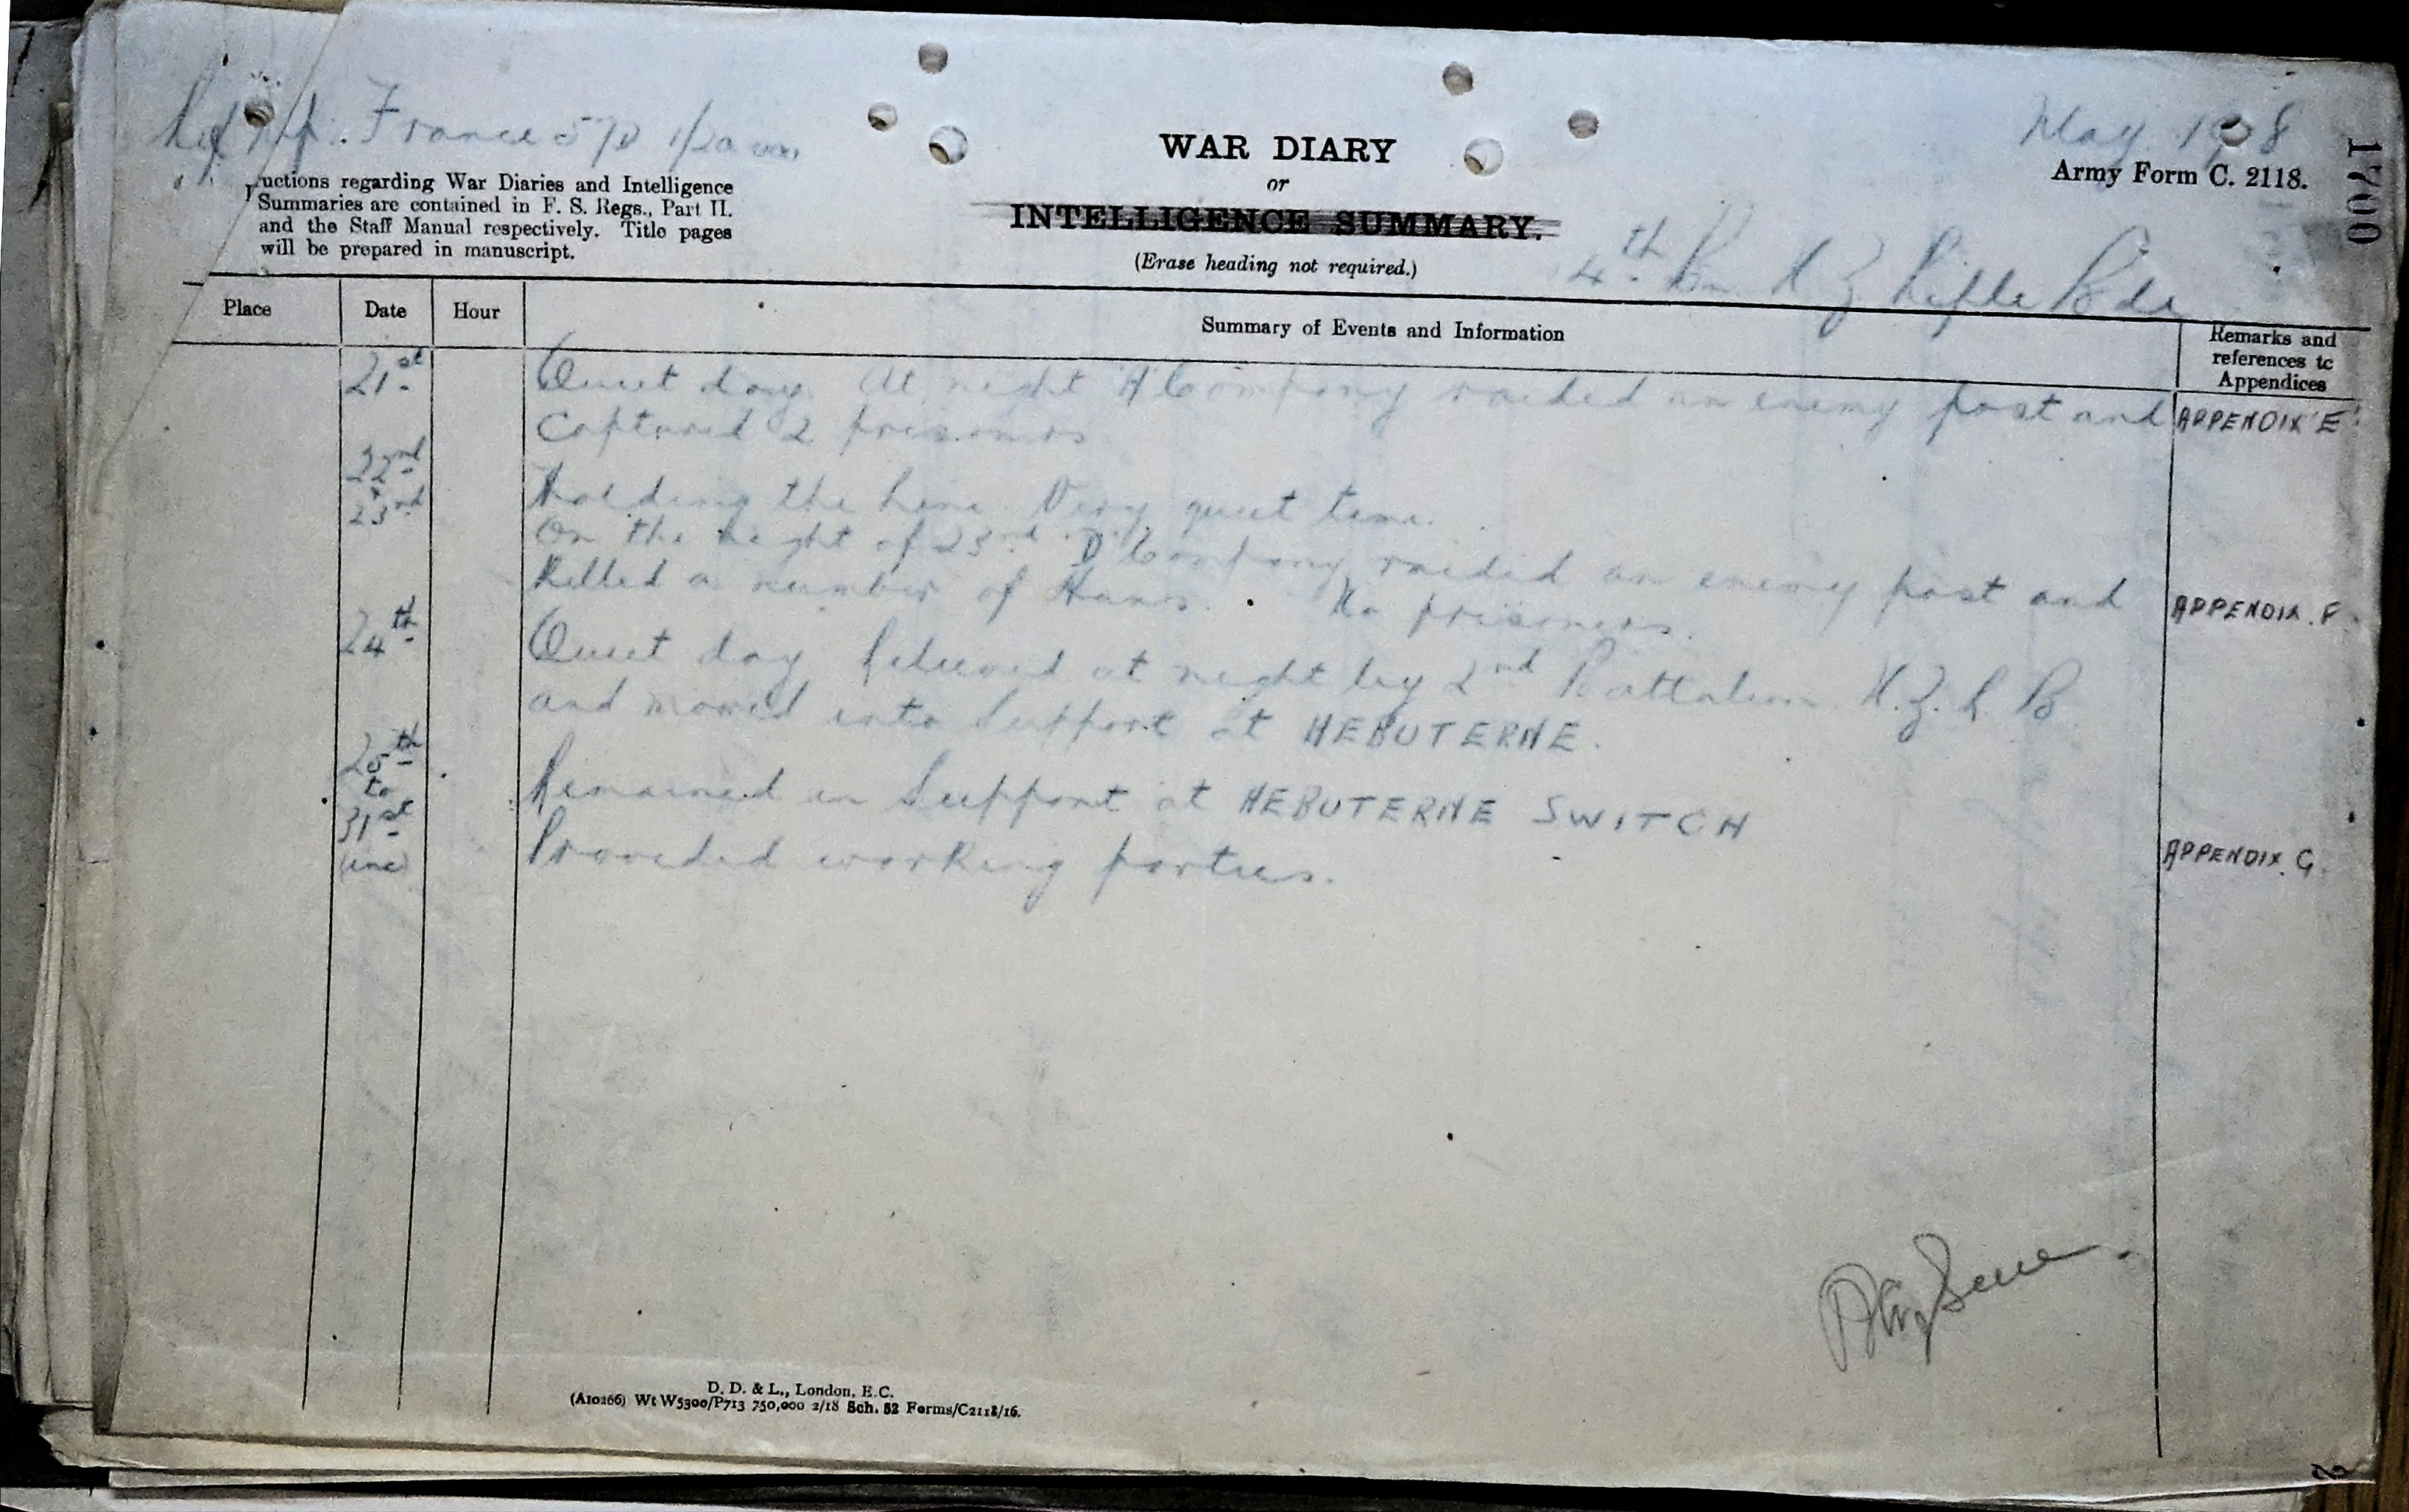 Ref Map. France 57D 1/20,000
May 1918
1700
WAR DIARY
or
INTELLIGENCE SUMMARY.
(Erase heading not required.)
Army Form C. 2118.
uctions regarding War Diaries and Intelligence
Summaries are contained in F. S. Regs., Part II.
and the Staff Manual respectively. Title pages
will be prepared in manuscript.
4th Bn N Z Rifle Bde
Place Date Hour Summary of Events and Information Remarks and references to Appendices
21st Quiet day. At night Company raided an enemy post and APPENDIX 'E'
Captured 2 prisoners
22nd
23rd Holding the line. Very quiet time.
On the night of 23rd 'D' Company raided an enemy post and
Killed a number of Huns. No prisoners. APPENDIX. F.
24th Quiet day. Relieved at night by 2nd Battalion N.Z.R.B
and moved into Support at HEBUTERNE.
25th
to Remained in Support at HEBUTERNE SWITCH
31st
(inc) Provided working parties. APPENDIX. G.
D. D. & L., London, E.C.
(A10266) Wt W5300/P713 750,000 2/18 Sch. 52 Forms/C2118/16.